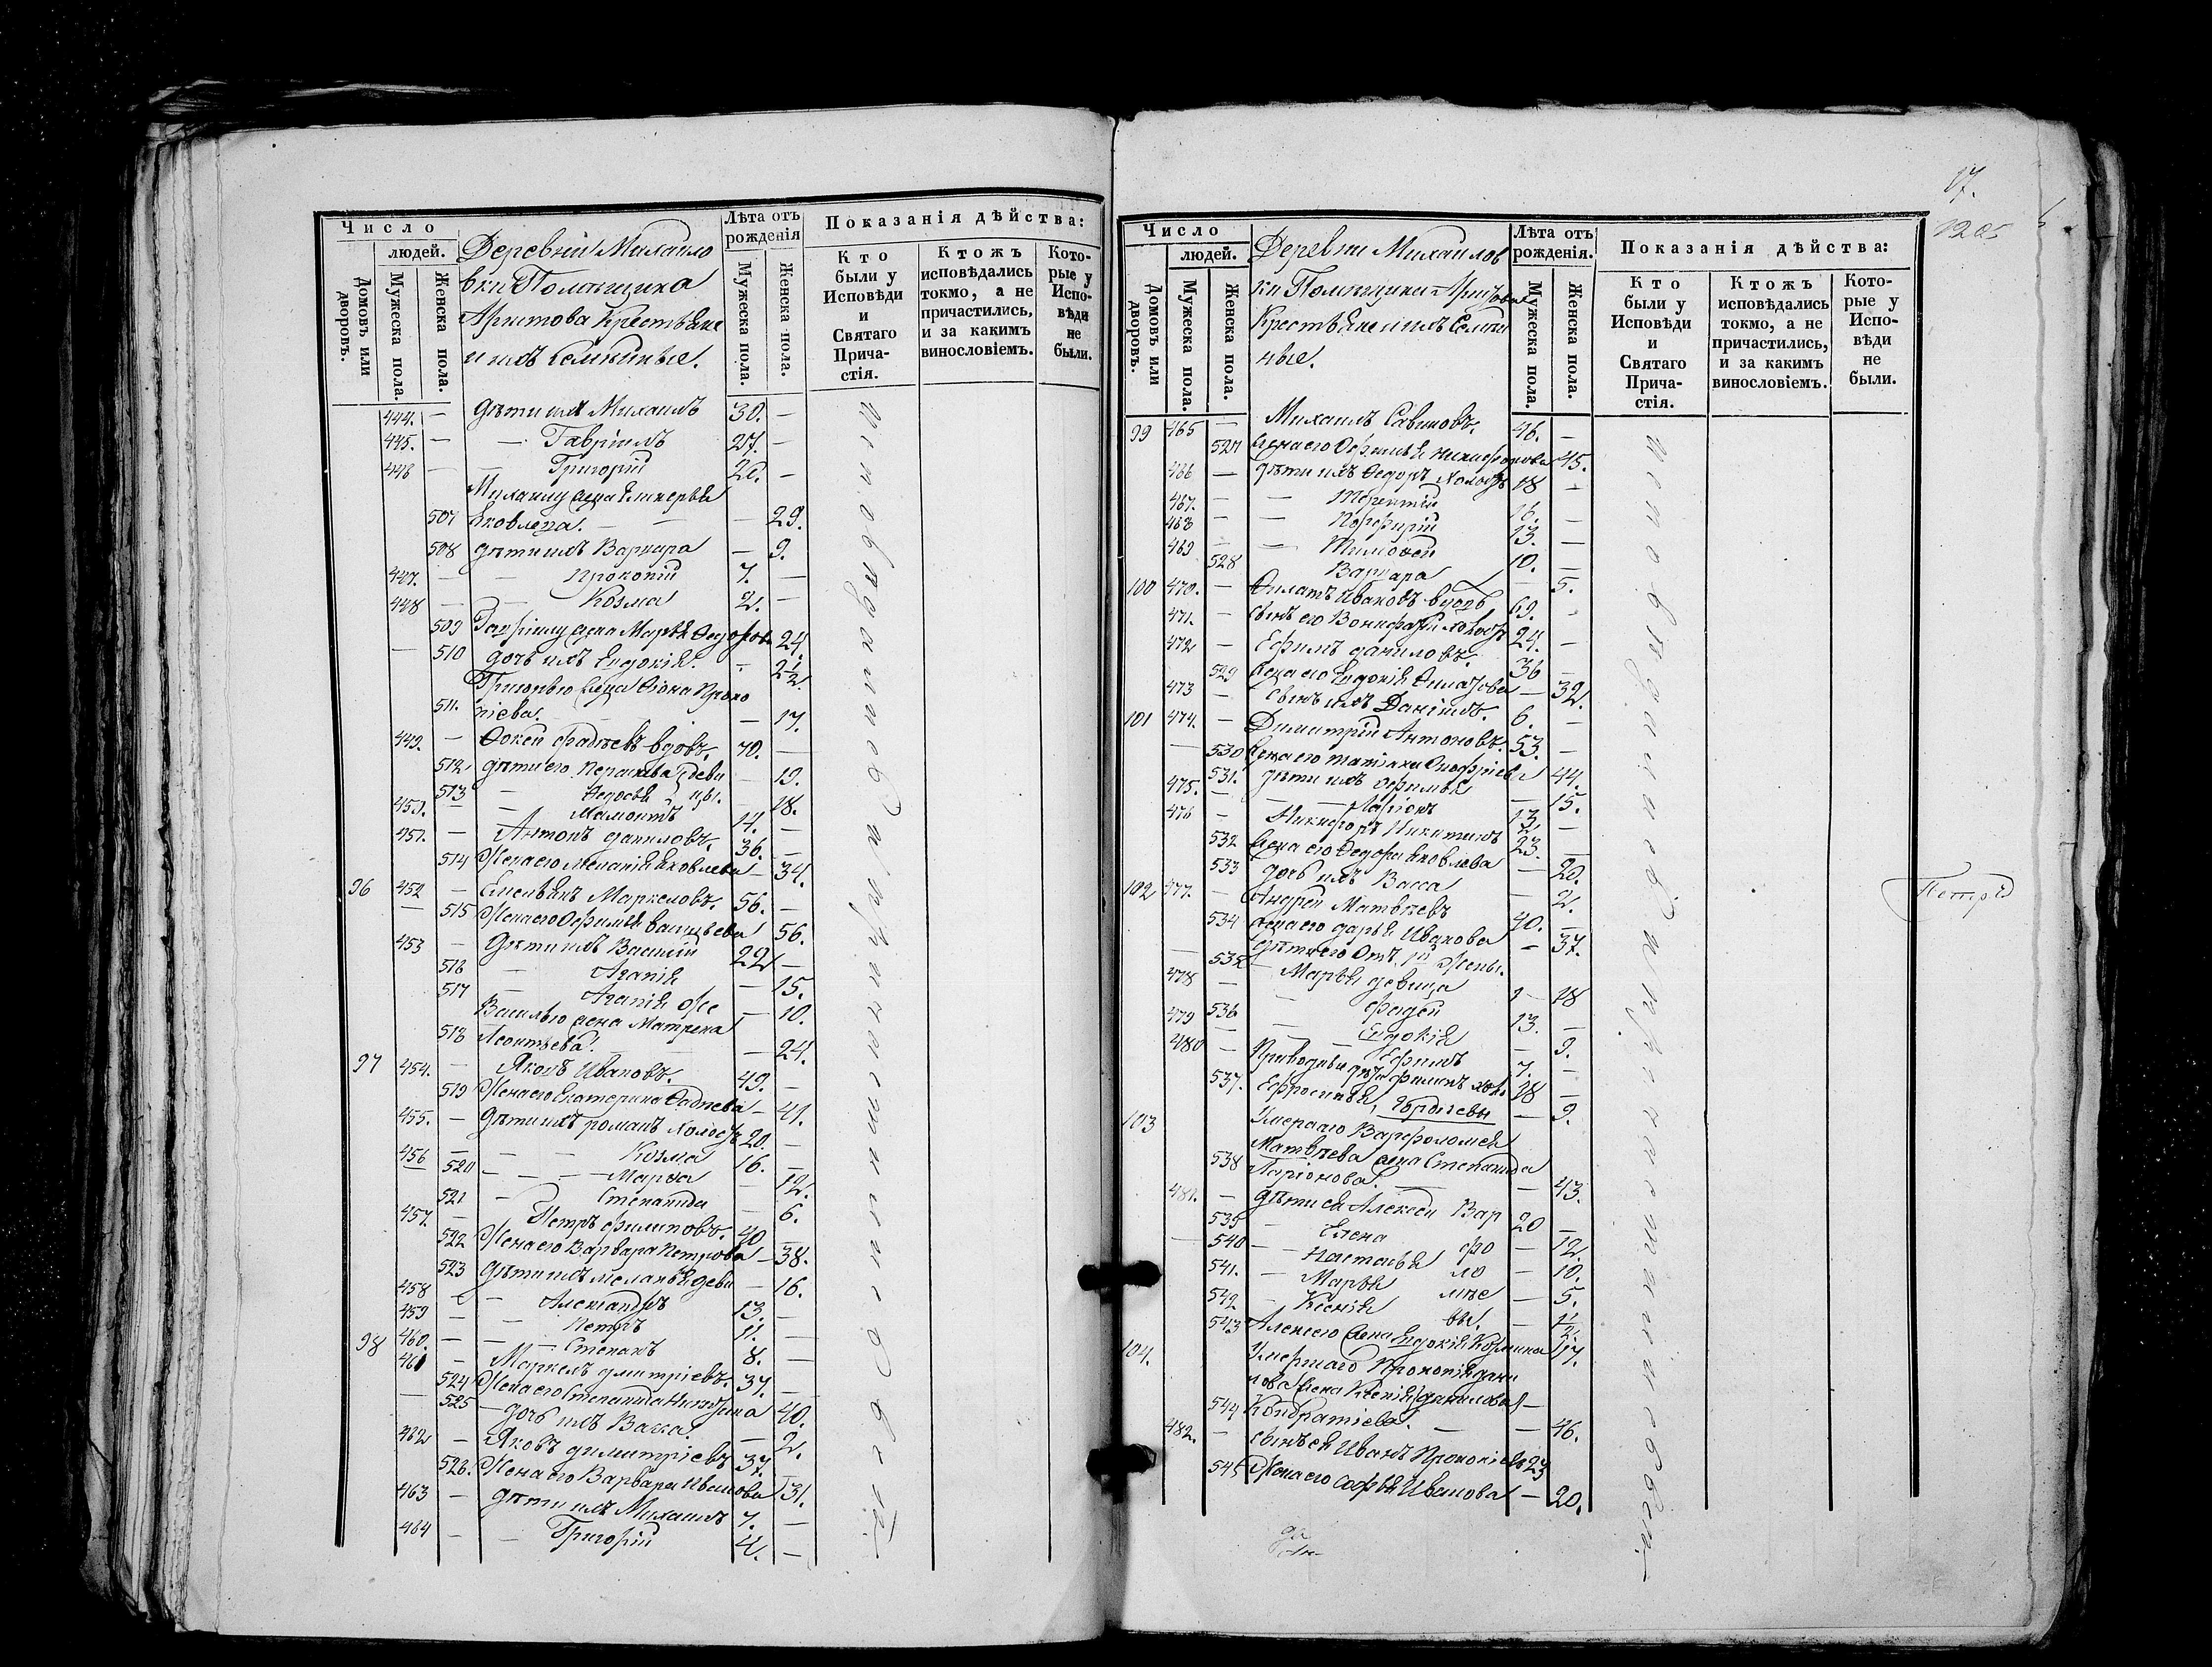 Число
людей.
Домовъ или дворовъ.
Мужеска пола.
Женска пола.
Деревни Михайло
вки Помѣщика
Аристова Крестьяне
и ихъ Семейные.
Лѣта отъ рожденія
Мужеска пола.
Женска пола.
Показанія дѣйства:
Кто были у Исповѣди и Святаго Причастія.
Ктожъ исповѣдались токмо, а не причастились, и за какимъ винословіемъ.
Которые у Исповѣди не были.
444. — дѣти ихъ Михаилъ 30. —
445. — — Гавріилъ 27. —
446 — — Григорій 20. —
Михаилу жена Гликерья
507 Яковлева. — — — 29.
508 дѣти ихъ Варвара — 9.
447. — — Прокопій 7. —
448 — — Козма 2. —
509 Гавріилу жена Марья Ѳедорова 24.
— 510 дочь ихъ Евдокія. — 1/2.
Григорью жена Ѳіона Проко
511. піева. — — 17.
449. — Ѳокей Фадѣевъ вдовъ. 70. —
512 дѣти его Параскева деви — 19.
513 — Ѳедосья цы. 18.
450. — — Мамонтъ 14. —
451. — Антонъ Даниловъ. 36. —
514 Жена его Меланія Яковлева — 34.
96 452 — Емельянъ Маркеловъ. 56. —
— 515 Жена его Ефимья Васильева 56.
453 — дѣти ихъ Василій 22 —
516 — Агапія — 15.
517 — Агапія же — 10.
Василью жена Матрена
518 Леонтьева. — — — 24.
97 454. — Яковъ Ивановъ. 49. —
519 Жена его Екатерина Фадѣева — 41.
455. — дѣти ихъ Романъ холостъ 20. —
456 — — — Козма 16. —
520 — — Марѳа — 12.
521 — Степанида — 6.
457. — Петръ Филиповъ. 40 —
522 Жена его Варвара Петрова — 38.
523 дѣти ихъ Меланья деви — 16.
458 — — Александръ 13. —
459 — — Петръ 11. —
460. — — Степанъ 8. —
98 461 — Маркелъ Дмитріевъ. 37. —
524 Жена его Степанида Никифорова 40.
— 525 — дочь ихъ Васса. — 2.
462 — Яковъ Димитріевъ 37.
526. Жена его Варвара Иванова 31.
463 — дѣти ихъ Михаилъ 7. —
464 — — Григорій 4. —
исповѣдались и причастились всѣ
17.
Число
людей.
Домовъ или дворовъ.
Мужеска пола.
Женска пола.
Деревни Михайлов
ки Помѣщика Аристова
Крестьяне и ихъ Семей
ные.
Лѣта отъ рожденія.
Мужеска пола.
Женска пола.
Показанія дѣйства:
Кто были у Исповѣди и Святаго Причастія.
Ктожъ исповѣдались токмо, а не причастились, и за какимъ винословіемъ.
Которые у Исповѣди не были.
99 465 — Михаилъ Савиновъ. 46. —
527 Жена его Ефимья Никифорова 45.
466 — дѣти ихъ Ѳедоръ холостъ 18 —
467. — — Терентій 16. —
468 — — Порфирій 13. —
469 — — Тимоѳей 10. —
528 Варвара — 5.
100 470. — Филатъ Ивановъ вдовъ 69. —
471. — сынъ его Вонифатій холостъ 24. —
472 — Ефимъ Даниловъ. 36 —
529 Жена его Евдокія Филатова — 32.
473 — сынъ ихъ Даніилъ. 6. —
101 474. — Димитрій Антоновъ. 53. —
— 530 Жена его Татіана Онофріева 44.
531. дѣти ихъ Ефимья — 15.
475. — — — Ларіонъ 13. —
476 — Никифоръ Никитинъ 23. —
532 Жена его Ѳедора Яковлева — 20.
533 дочь ихъ Васса — 2.
102 477. — Андрей Матвѣевъ 40. —
534 жена его Дарья Иванова — 37.
дѣти его отъ 1й жены.
— 535 — Марья девица — 18
478 — — Фадей 13. —
536 — Евдокія — 9.
479 — — Ефимъ 7. —
480 — Приводныя дѣти Филипъ хол. 18 —
537. Ефросинья, — 9.
103 Умершаго Варфоломея
Матвѣева жена Степанида
538 Ларіонова. — — 43.
481. — дѣти ея Алексей Вар 20 —
539 — Елена фо — 12.
540 — Настасья ло — 10.
541. — Марья мѣе — 5.
542 — Ксенія вы. — 1/2.
543 Алексею жена Евдокія 17.
104. Умершаго Прокопія Дани
лова жена Ксенія (Данилова) —
544 Кондратіева. — — 46.
482. — сынъ ея Иванъ Прокопіевъ 23
545 Жена его Софья Иванова — 20.
исповѣдались и причастились всѣ
Петръ